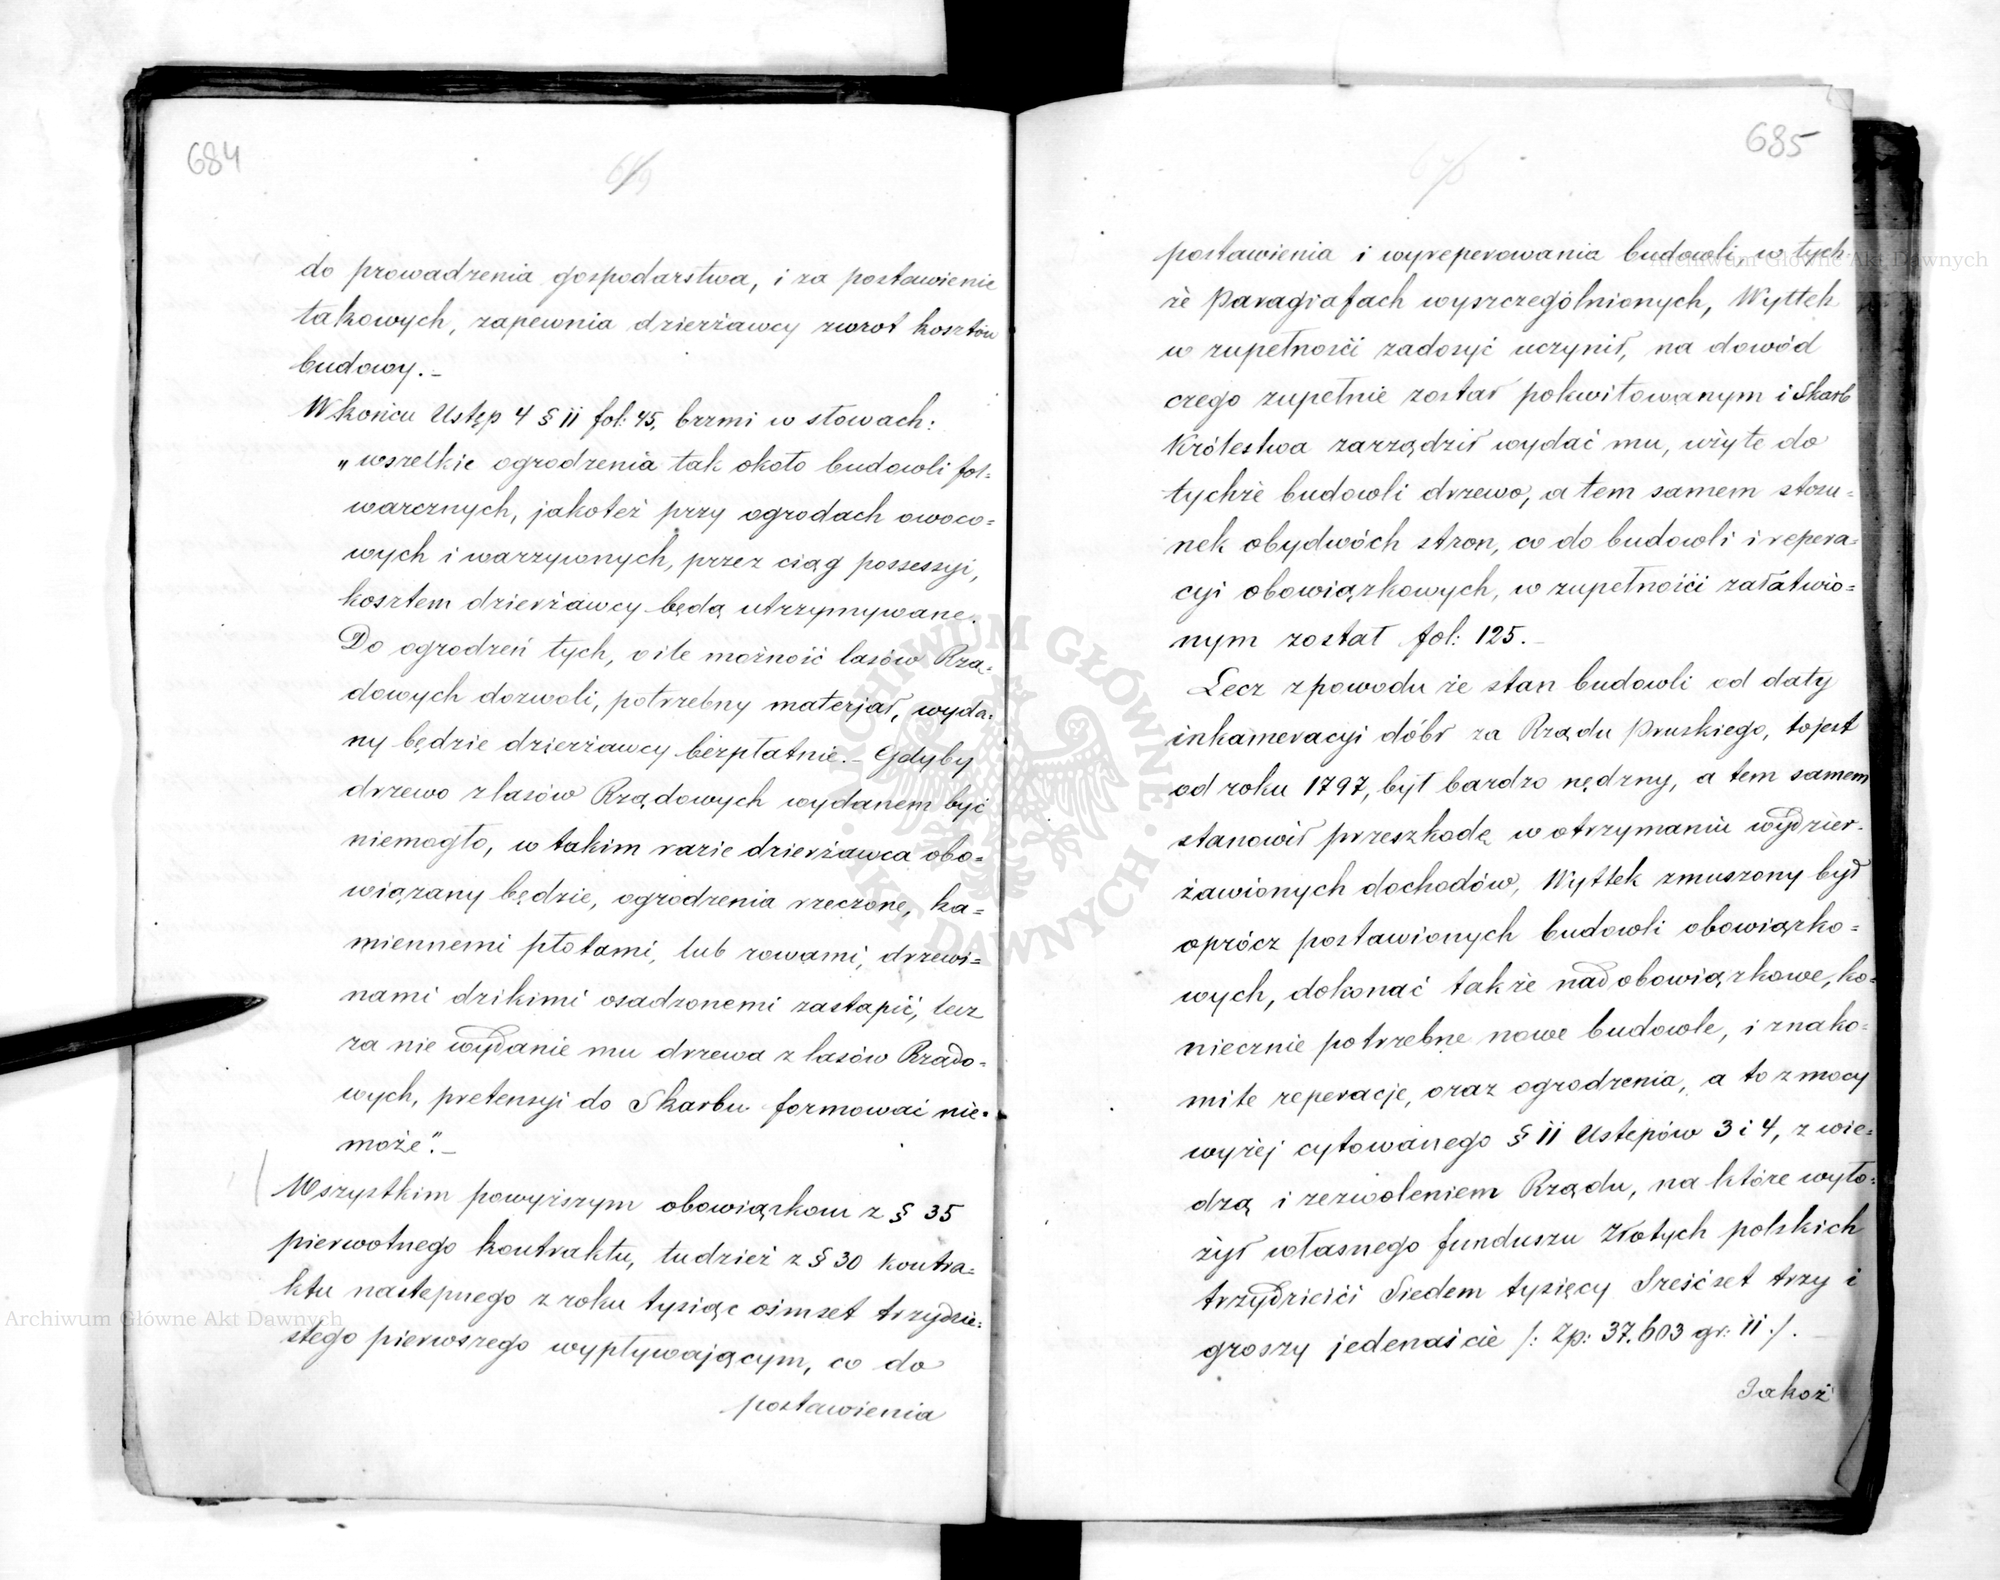 684
do prowadzenia gospodarstwa, i za postawienie
takowych, zapewnia dzierżawcy zwrot kosztów
budowy.–
W końcu Ustęp 4 § 11 fol: 45, brzmi w słowach:
„wszelkie ogrodzenia tak około budowli fol=
warcznych, jakoteż przy ogrodach owoco=
wych i warzywnych, przez ciąg possessyi,
kosztem dzierżawcy będą utrzymywane.
Do ogrodzeń tych, o ile możność lasów Rzą=
dowych dozwoli, potrzebny materjał, wyda=
ny będzie dzierżawcy bezpłatnie.– Gdyby
drzewo z lasów Rządowych wydanem być
niemogło, w takim razie dzierżawca obo=
wiązany będzie, ogrodzenia rzeczone, ka=
miennemi płotami, lub rowami, drzewi=
nami dzikimi osadzonemi zastąpić, lecz
za nie wydanie mu drzewa z lasów Rządo=
wych, pretensyi do Skarbu formować nie=
może”.–
Wszystkim powyższym obowiązkom z § 35
pierwotnego kontraktu, tudzież z § 30 kontra=
ktu następnego z roku tysiąc ośmset trzydzie=
stego pierwszego wypływającym, co do
postawienia
685
postawienia i wyreperowania budowli, w tych
że Paragrafach wyszczególnionych, Wyttek
w zupełności zadosyć uczynił, na dowód
czego zupełnie został pokwitowanym i Skarb
Królestwa zarządził wydać mu, użyte do
tychże budowli drzewo, a tem samem stosu=
nek obydwóch stron, co do budowli i repera=
cyi obowiązkowych, w zupełności załatwio=
nym został fol: 125.–
Lecz z powodu że stan budowli od daty
inkameracyi dóbr za Rządu Pruskiego, tojest
od roku 1797, był bardzo nędzny, a tem samem
stanowił przeszkodę w otrzymaniu wydzier=
żawionych dochodów, Wyttek zmuszony był
oprócz postawionych budowli obowiązko=
wych, dokonać także nadobowiązkowe, ko=
niecznie potrzebne nowe budowle, i znako=
mite reperacje, oraz ogrodzenia, a to z mocy
wyżej cytowanego § 11 Ustępów 3 i 4, z wie=
dzą i zezwoleniem Rządu, na które wyło=
żył własnego funduszu Złotych polskich
trzydzieści Siedem tysięcy Sześćset trzy i
groszy jedenaście /: Zp: 37.603 gr: 11 :/.–
Jakoż
Archiwum Główne Akt Dawnych
Archiwum Główne Akt Dawnych
ARCHIWUM GŁÓWNE · AKT DAWNYCH ·